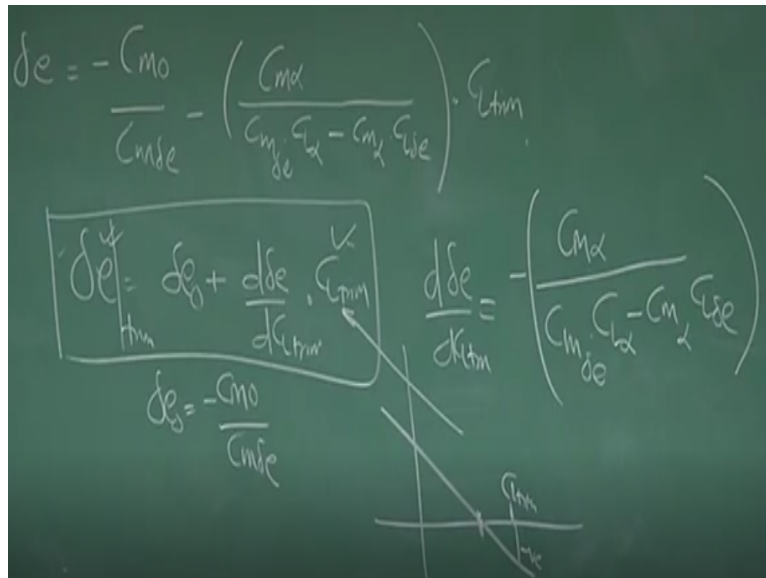 δe = - Cm0 / Cmδe - ( Cmα / Cmδe CLα - Cmα CLδe ) . CLtrim
δe|trim = δe0 + dδe / dCLtrim . CLtrim
dδe / dCLtrim = - ( Cmα / Cmδe CLα - Cmα CLδe )
δe0 = - Cm0 / Cmδe
CLtrim
-ve